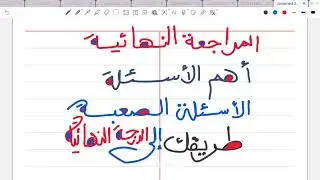 المراجعة النهائية
أهم الأسئلة
الأسئلة الصعبة
طريقك إلى الدرجة النهائية